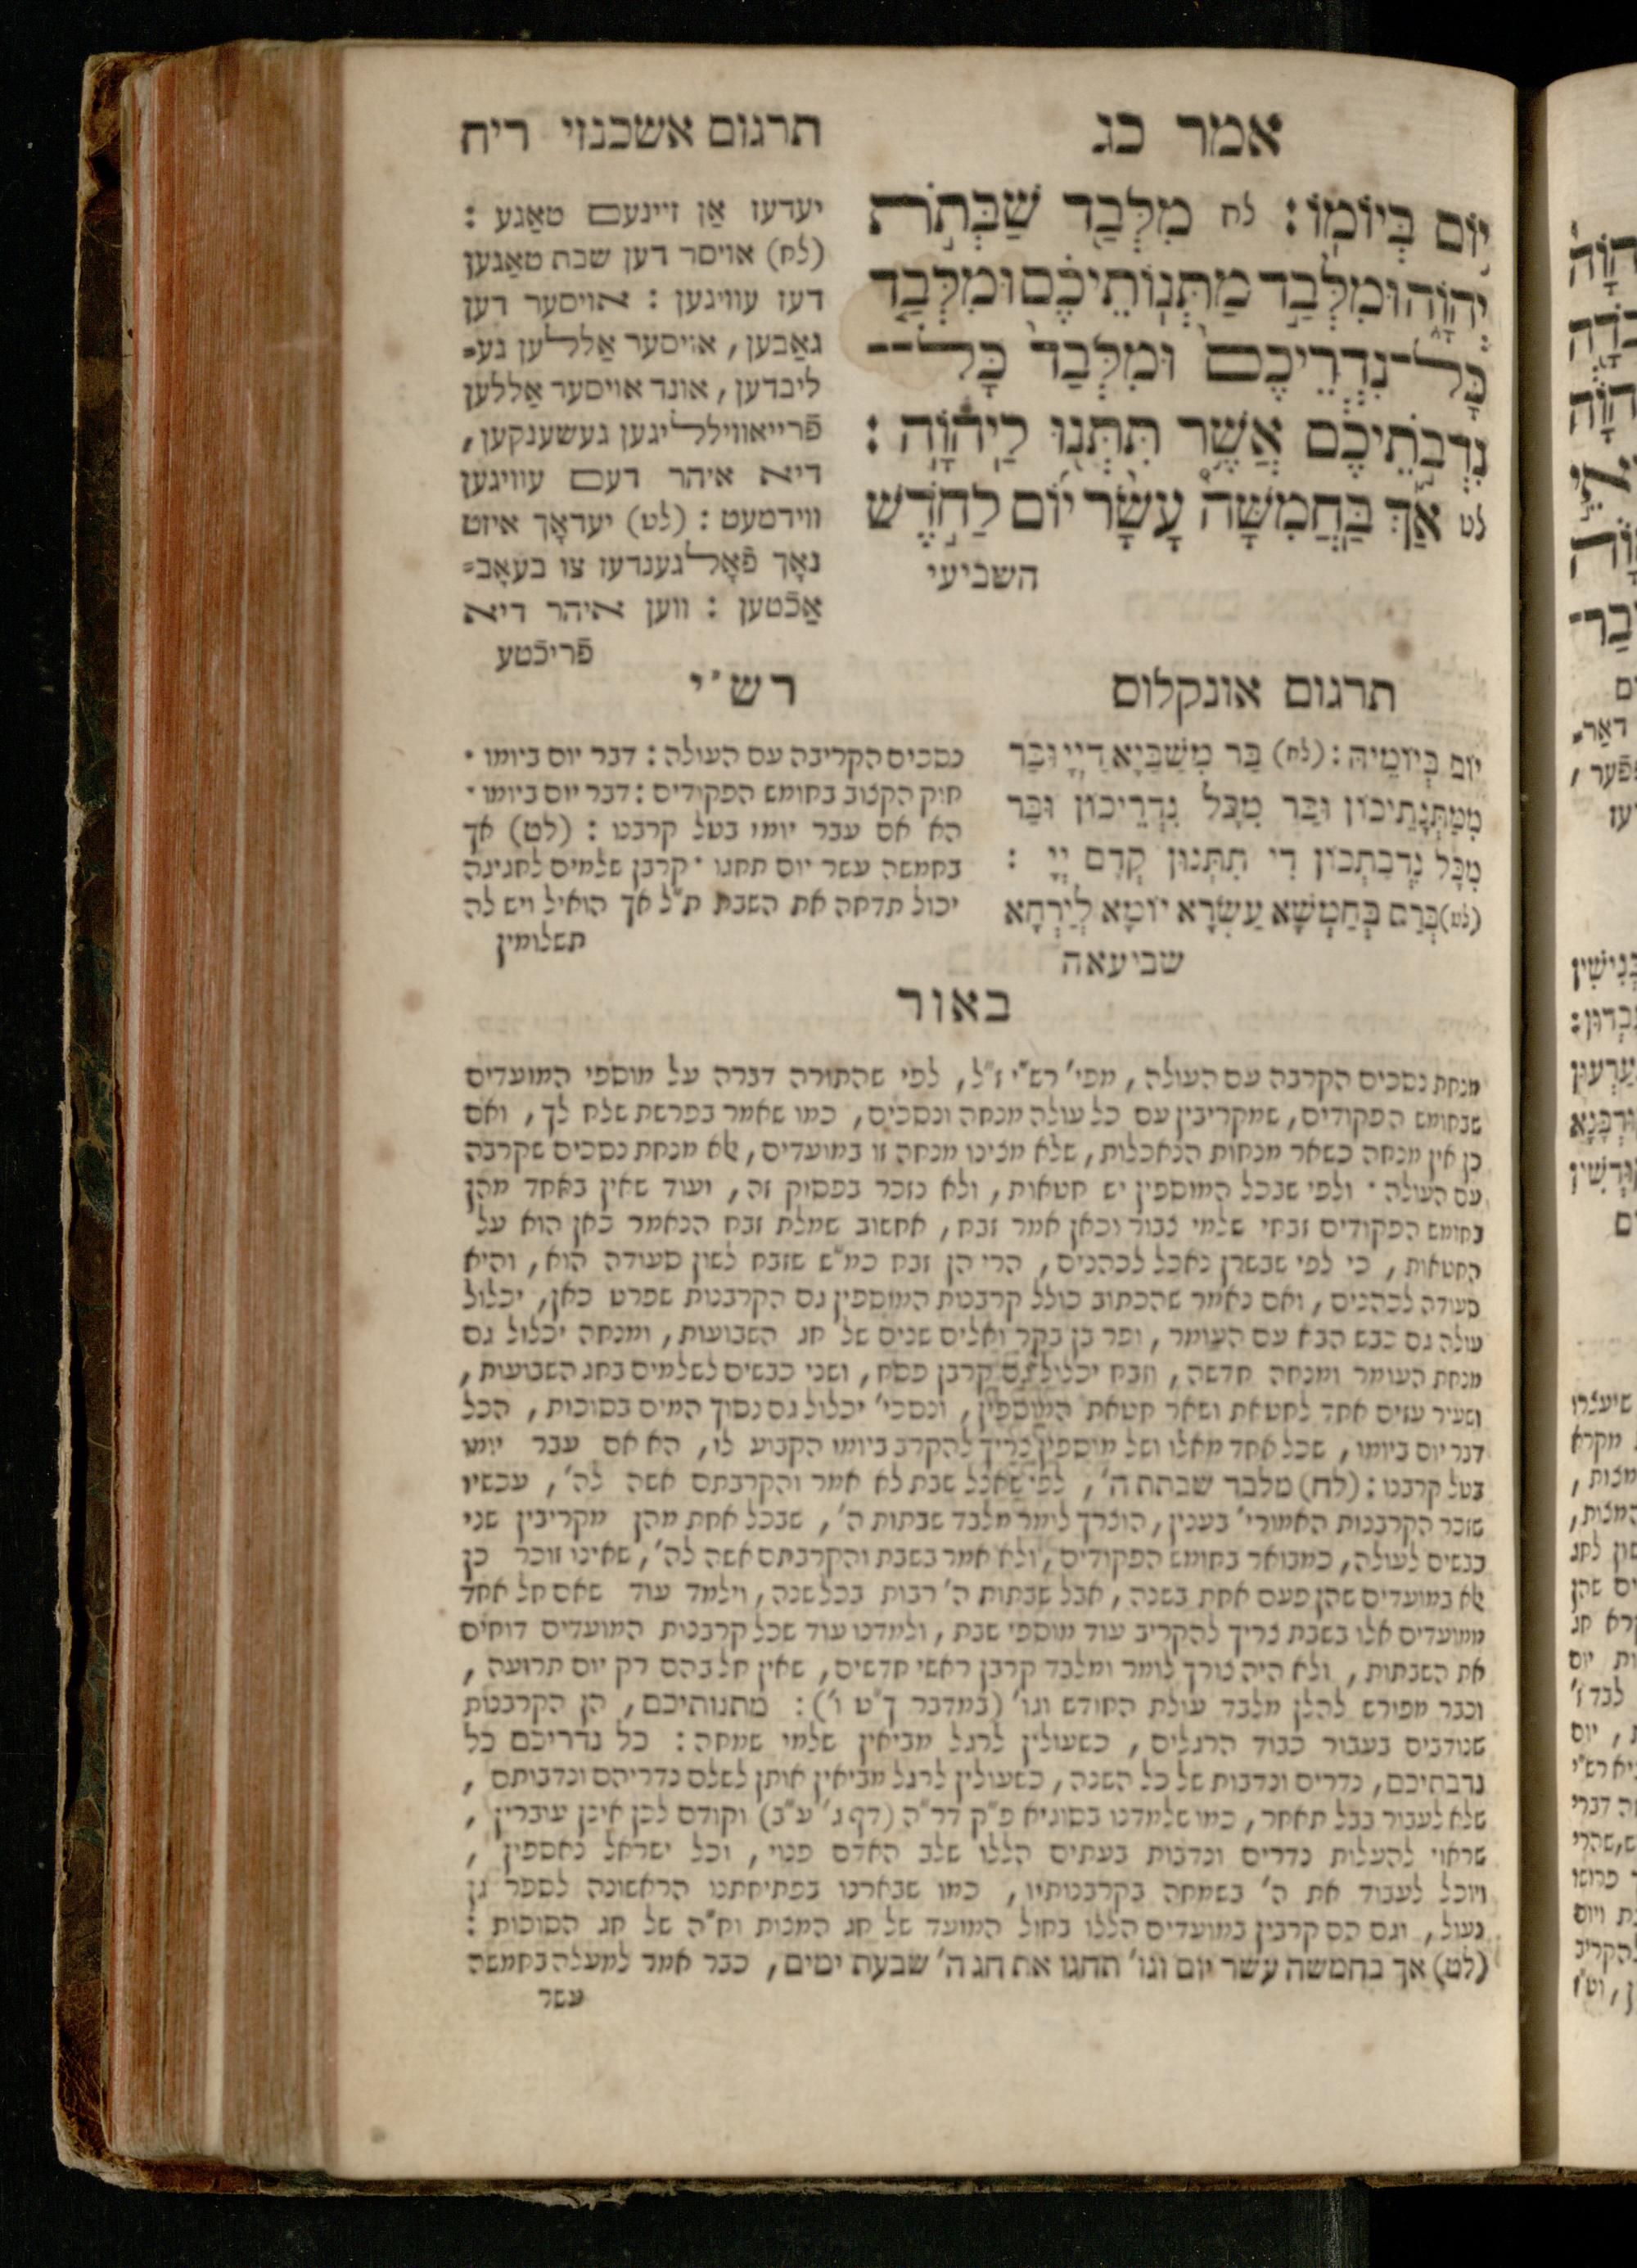 אמר כג
תרגום אשכנזי ריח
יוֹם בְּיוֹמוֹ: לח מִלְּבַד שַׁבְּתֹת
יְהוָֹה וּמִלְּבַד מַתְּנוֹתֵיכֶם וּמִלְּבַד
כָּל־נִדְרֵיכֶם וּמִלְּבַד כָּל־
נִדְבֹתֵיכֶם אֲשֶׁר תִּתְּנוּ לַיהוָֹה:
לט אַךְ בַּחֲמִשָּׁה עָשָׂר יוֹם לַחֹדֶשׁ
השביעי
יעדעז אַן זיינעם טאַגע :
(לח) אויסר דען שבת טאַגען
דעז עוויגען : אויסער דען
גאַבען, אויסער אַללען גע=
ליבדען, אונד אויסער אַללען
פֿרייאווילליגען געשענקען,
דיא איהר דעם עוויגען
ווידמעט : (לט) יעדאָך איזט
נאָך פֿאָלגענדעז צו בעאָב=
אַכֿטען : ווען איהר דיא
פֿריכֿטע
תרגום אונקלוס
יוֹם בְּיוֹמֵיהּ: (לח) בַּר מִשַּׁבַּיָּא דַיְיָ וּבַר
מִמַּתְּנָתֵיכוֹן וּבַר מִכָּל נִדְרֵיכוֹן וּבַר
מִכָּל נִדְבָתְכוֹן דִּי תִתְּנוּן קֳדָם יְיָ :
(לט) בְּרַם בְּחַמְשָׁא עַשְׂרָא יוֹמָא לְיַרְחָא
שביעאה
רש"י
נסכים הקריבה עם העולה: דבר יום ביומו ·
חוק הקצוב בחומש הפקודים: דבר יום ביומו ·
הא אם עבר יומו בטל קרבנו : (לט) אך
בחמשה עשר יום תחגו · קרבן שלמים לחגיגה
יכול תדחה את השבת ת"ל אך הואיל ויש לה
תשלומין
באור
מנחת נסכים הקרבה עם העולה, מפי' רש"י ז"ל, לפי שהתורה דברה על מוספי המועדים
שבחומש הפקודים, שמקריבין עם כל עולה מנחה ונסכים, כמו שאמר בפרשת שלח לך, ואם
כן אין מנחה כשאר מנחות הנאכלות, שלא מצינו מנחה זו במועדים, אלא מנחת נסכים שקרבה
עם העולה · ולפי שבכל המוספין יש חטאות, ולא נזכר בפסוק זה, ועוד שאין באחד מהן
בחומש הפקודים זבחי שלמי צבור וכאן אמר זבח, אחשוב שמלת זבח הנאמר כאן הוא על
החטאות, כי לפי שבשרן נאכל לכהנים, הרי הן זבח כמ"ש שזבח לשון סעודה הוא, והיא
סעודה לכהנים, ואם נאמר שהכתוב כולל קרבנות המוספין גם הקרבנות שפרט כאן, יכלול
עולה גם כבש הבא עם העומר, ופר בן בקר ואלים שנים של חג השבועות, ומנחה יכלול גם
מנחת העומר ומנחה חדשה, וזבח יכלול גם קרבן פסח, ושני כבשים לשלמים בחג השבועות,
ושעיר עזים אחד לחטאת ושאר חטאת המוספין, ונסכי' יכלול גם נסוך המים בסוכות, הכל
דבר יום ביומו, שכל אחד מאלו ושל מוספין צריך להקרב ביומו הקבוע לו, הא אם עבר יומו
בטל קרבנו: (לח) מלבד שבתת ה', לפי שאצל שבת לא אמר והקרבתם אשה לה', עכשיו
שזכר הקרבנות האמורי' בענין, הוצרך לומר מלבד שבתות ה', שבכל אחת מהן מקריבין שני
כבשים לעולה, כמבואר בחומש הפקודים, ולא אמר בשבת והקרבתם אשה לה', שאינו זוכר כן
אלא במועדים שהן פעם אחת בשנה, אבל שבתות ה' רבות בכל שנה, וילמד עוד שאם חל אחד
ממועדים אלו בשבת צריך להקריב עוד מוספי שבת, ולמדנו עוד שכל קרבנות המועדים דוחים
את השבתות, ולא היה צורך לומר ומלבד קרבן ראשי חדשים, שאין חל בהם רק יום תרועה,
וכבר מפורש להלן מלבד עולת החודש וגו' (במדבר ך"ט ו'): מתנותיכם, הן הקרבנות
שנודבים בעבור כבוד הרגלים, כשעולין לרגל מביאין שלמי שמחה: כל נדריכם כל
נדבתיכם, נדרים ונדבות של כל השנה, כשעולין לרגל מביאין אותן לשלם נדריהם ונדבותם,
שלא לעבור בבל תאחר, כמו שלמדנו בסוגיא פ"ק דר"ה (דף ג' ע"ב) וקודם לכן אינן עוברין,
שראוי להעלות נדרים ונדבות בעתים הללו שלב האדם פנוי, וכל ישראל נאספין,
ויוכל לעבוד את ה' בשמחה בקרבנותיו, כמו שבארנו בפתיחתנו הראשונה לספר גן
נעול, וגם הם קרבין במועדים הללו בחול המועד של חג המצות וח"ה של חג הסוכות :
(לט) אך בחמשה עשר יום וגו' תחגו את חג ה' שבעת ימים, כבר אמר למעלה בחמשה
עשר